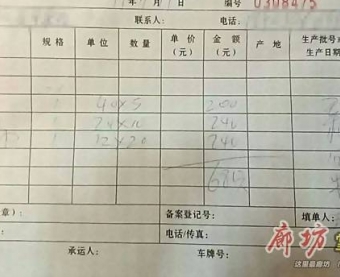 编号 0308475
联系人： 电话：
规格 单位 数量 单价（元） 金额（元） 产地 生产批号 生产日期
40×5 200
24×10 240
12×20 240
680
备案登记号： 填单人：
章）： 电话/传真：
承运人： 车牌号：
廊坊